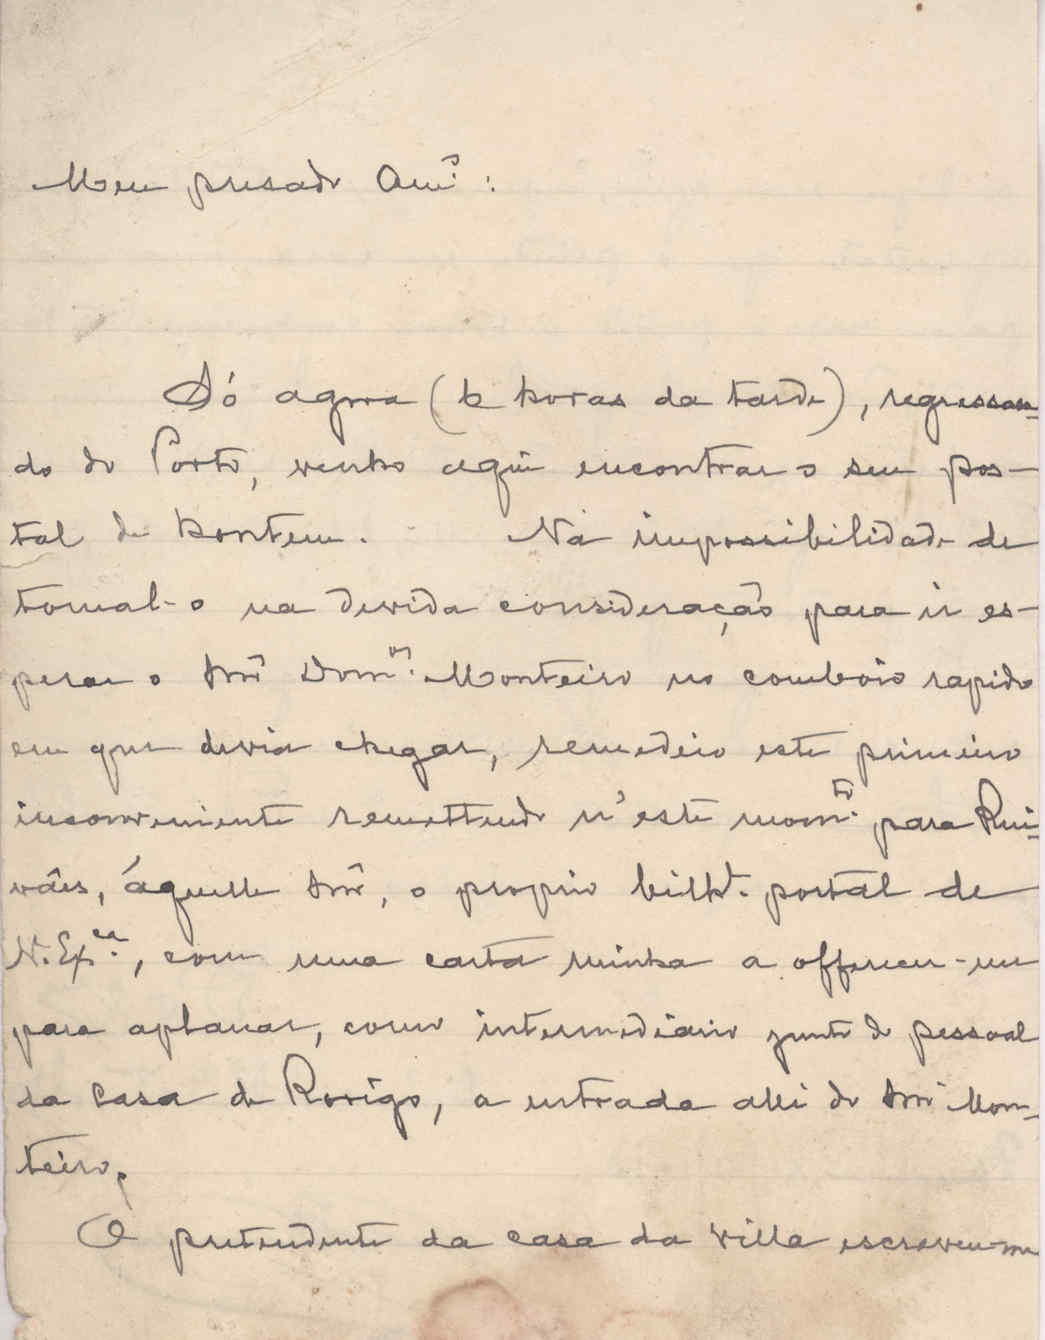 Meu presado Amº:
Só agora (6 horas da tarde), regressan-
do do Porto, venho aqui encontrar o seu pos-
tal de hontem. Na impossibilidade de
tomal-o na devida consideração para ir es-
perar o Snr Domos. Monteiro no comboio rapido
em que devia chegar, remedeio este primeiro
inconveniente remettendo n'este momto. para Rui-
vães, áquelle Snr, o proprio bilht. postal de
V. Exca., com uma carta minha a offerecer-me
para aplanar, como intermediario junto do pessoal
da Casa de Rorigo, a entrada alli do Snr Mon-
teiro.
O pretendente da casa da Villa escreveu-me